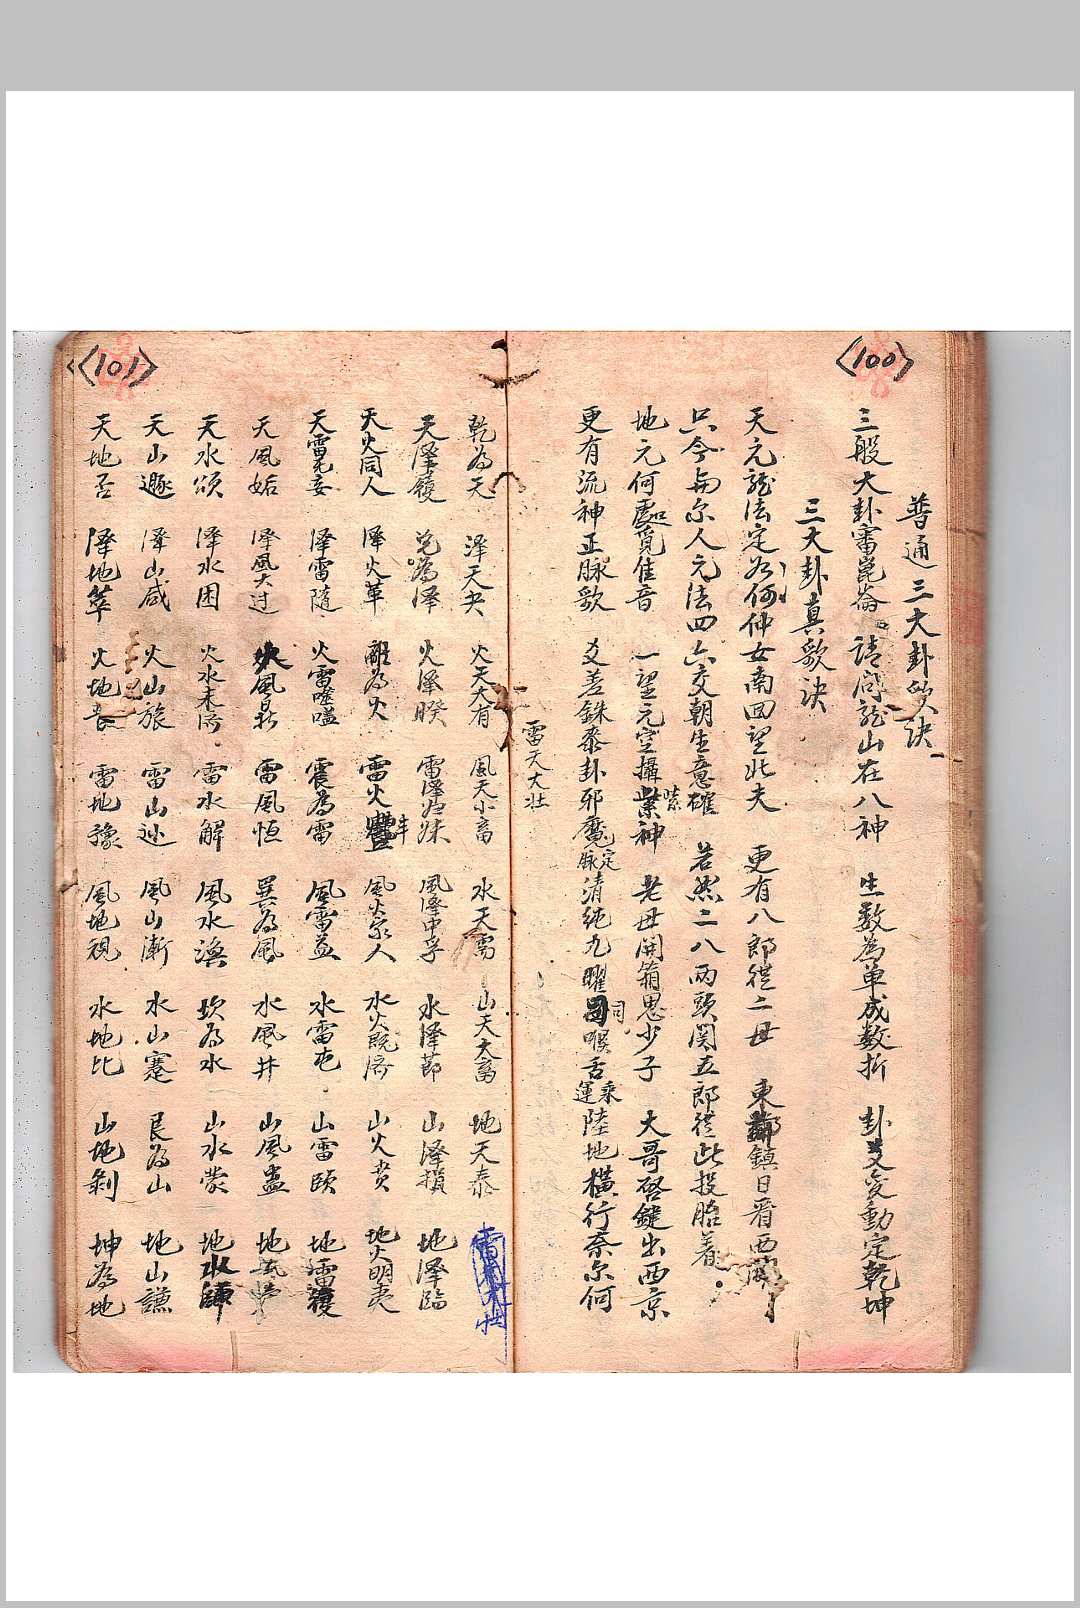 <100>
普通三大卦歌訣
三般大卦審崑崙 請問龍山在八神 生數為單成數折 卦爻変動定乾坤
三大卦真歌訣
天元龍法定为何 仲女南回望北夫 更有八郎從二母 東鎮日看西
只今与尔人元法 四六交朝生意確 若然二八両頭関 五郎從此投膽着
地元何處覓佳音 一望元空攝紫神 老母開箱思少子 大哥啓鍵出西京
更有流神正脉歌 爻差銖黍卦邪魔 定脉清純九曜司喉舌 乘運陸地橫行奈尔何
雷天大壮
<101>
乾為天 泽天夬 火天大有 風天小畜 水天需 山天大畜 地天泰
天泽履 兌為泽 火泽暌 雷泽归妹 風泽中孚 水泽節 山泽損 地泽臨
天火同人 泽火革 離為火 雷火豐 風火家人 水火既济 山火賁 地火明夷
天雷无妄 泽雷隨 火雷噬嗑 震為雷 風雷益 水雷屯 山雷頤 地雷復
天風姤 泽風大过 火風鼎 雷風恆 巽為風 水風井 山風蠱 地風
天水頌 泽水困 火水未济 雷水解 風水渙 坎為水 山水蒙 地水師
天山遯 泽山咸 火山旅 雷山 風山漸 水山蹇 艮為山 地山謙
天地否 泽地萃 火地 雷地豫 風地視 水地比 山地剝 坤為地